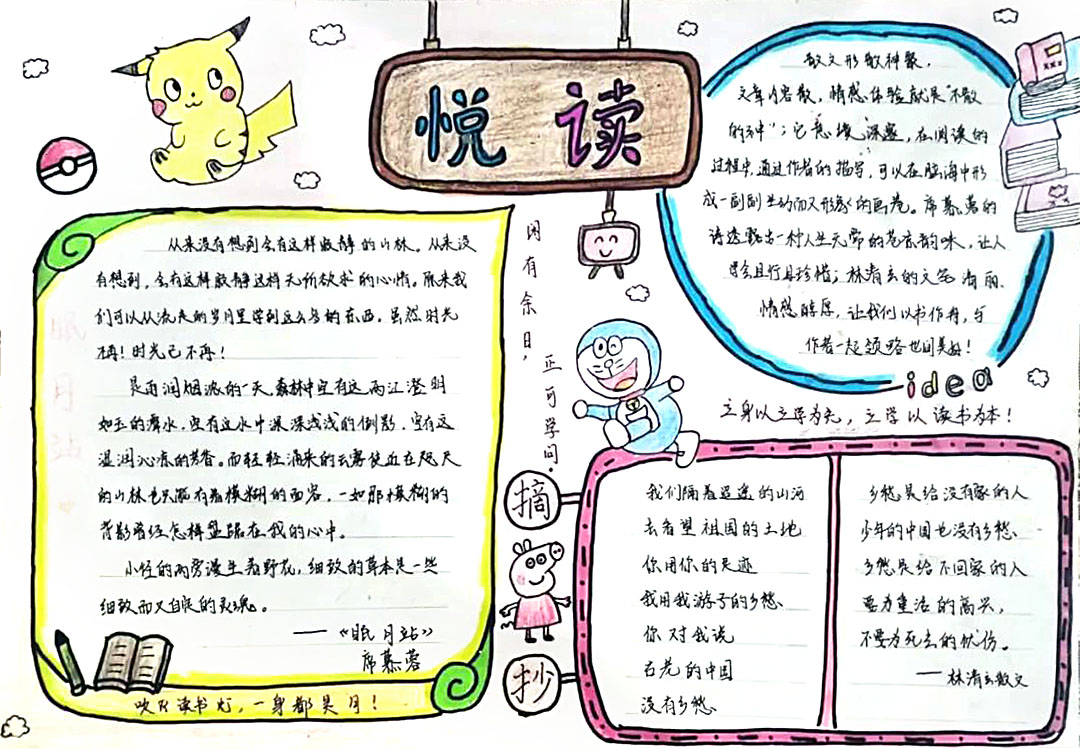 悦读
从来没有想到会有这样寂静的山林。从来没
有想到,会有这样寂静这样无所欲求的心情。原来我
们可以从流失的岁月里学到这么多的东西。虽然时光
不再!时光已不再!
是雨润烟浓的一天,森林中空有这两江澄明
如玉的潭水,空有这水中深深浅浅的倒影,空有这
湿润沁凉的芳香。而轻轻涌来的云雾使近在咫尺
的山林也只能有着模糊的面容,一如那模糊的
背影曾经怎样盘踞在我的心中。
小径的两旁漫生着野花,细致的草本是一些
细致而又自足的灵魂。
——《眠月站》
席慕蓉
吹灭读书灯,一身都是月!
闲有余日,
正可学问。
散文形散神聚,
文章内容散,情感体验就是“不散
的神”;它意境深邃,在阅读的
过程中,通过作者的描写,可以在脑海中形
成一副副生动而又形象的画卷。席慕蓉的
诗透露出一种人生无常的苍凉韵味,让人
且行且珍惜;林清玄的文字清丽、
情感醇厚,让我们以书作舟,与
作者一起领略世间美好!
idea
立身以立学为先,立学以读书为本!
摘
抄
我们隔着遥远的山河
去看望祖国的土地
你用你的足迹
我用我游子的乡愁
你对我说
古老的中国
没有乡愁
乡愁是给没有家的人
少年的中国也没有乡愁
乡愁是给不回家的人
要为重活的高兴,
不要为死去的忧伤。
——林清玄散文